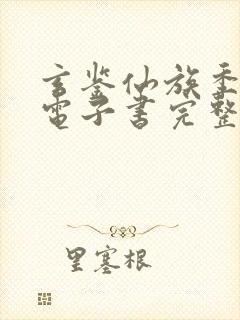 玄鉴仙族季
電子書完整
里塞根